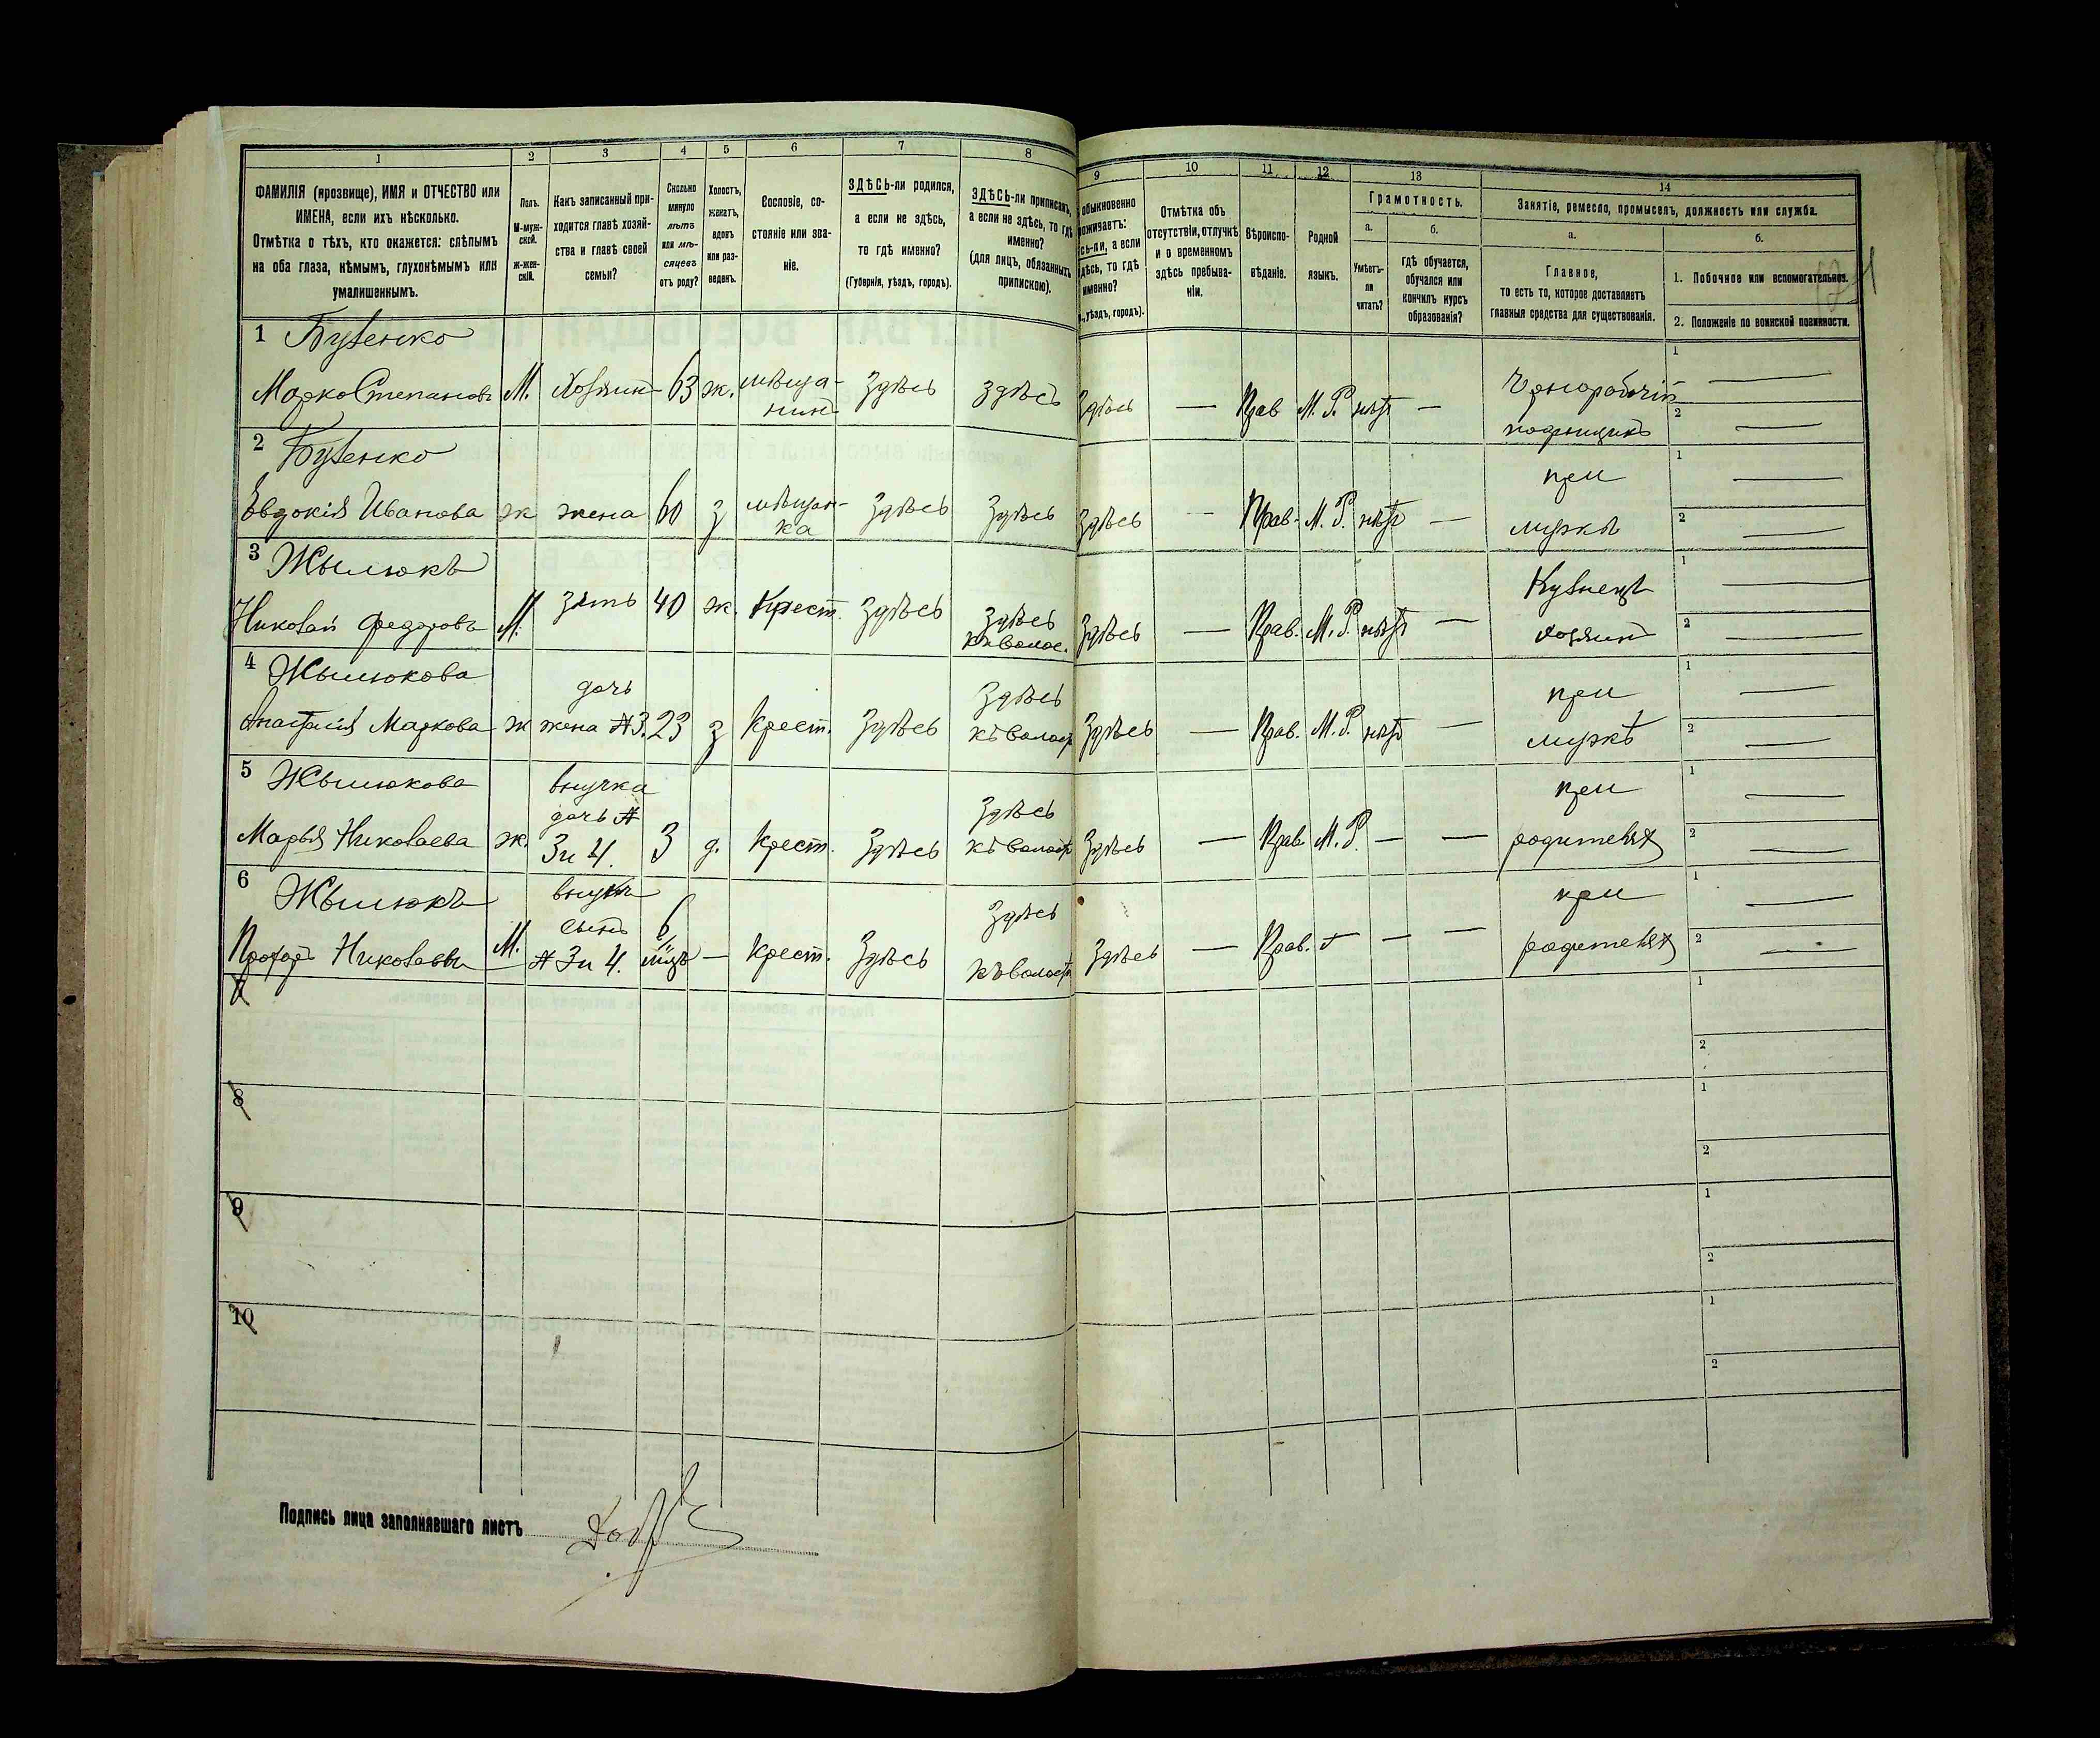 1 2 3 4 5 6 7 8 9 10 11 12 13 14
ФАМИЛІЯ (прозвище), ИМЯ и ОТЧЕСТВО или
ИМЕНА, если ихъ нѣсколько.
Отмѣтка о тѣхъ, кто окажется: слѣпымъ
на оба глаза, нѣмымъ, глухонѣмымъ или
умалишеннымъ.
Полъ.
М-муж-
ской.
ж-жен-
скій.
Какъ записанный при-
ходится главѣ хозяй-
ства и главѣ своей
семьи?
Сколько
минуло
лѣтъ
или мѣ-
сяцевъ
отъ роду?
Холостъ,
женатъ,
вдовъ
или раз-
веденъ.
Сословіе, со-
стояніе или зва-
ніе.
ЗДѢСЬ-ли родился,
а если не здѣсь,
то гдѣ именно?
(Губернія, уѣздъ, городъ).
ЗДѢСЬ-ли приписанъ,
а если не здѣсь, то гдѣ
именно?
(для лицъ, обязанныхъ
припискою).
обыкновенно
проживаетъ:
здѣсь-ли, а если
не здѣсь, то гдѣ
именно?
уѣздъ, городъ).
Отмѣтка объ
отсутствіи, отлучкѣ
и о временномъ
здѣсь пребыва-
ніи.
Вѣроиспо-
вѣданіе.
Родной
языкъ.
Грамотность.
а.
Умѣетъ-
ли
читать?
б.
гдѣ обучается,
обучался или
кончилъ курсъ
образованія?
Занятіе, ремесло, промыселъ, должность или служба.
а.
Главное,
то есть то, которое доставляетъ
главныя средства для существованія.
б.
1. Побочное или вспомогательное.
2. Положеніе по воинской повинности.
1 Бузенко
Марко Степановъ М. Хозяинъ 63 ж. мѣща-
нинъ Здѣсь Здѣсь Здѣсь — Прав М. Р. нѣтъ — Чернорабочій
поденщикъ 1 — 2 —
2 Бузенко
Евдокія Иванова ж жена 60 з мѣщан-
ка Здѣсь Здѣсь Здѣсь — Прав. М. Р. нѣтъ — при
мужѣ 1 — 2 —
3 Жылюкъ
Николай Федоровъ М. зять 40 ж. Крест. Здѣсь Здѣсь
къ волос. Здѣсь — Прав. М. Р. нѣтъ — Кузнецъ
хозяинъ 1 — 2 —
4 Жылюкова
Анастасія Маркова ж дочь
жена № 3. 23 з Крест. Здѣсь Здѣсь
къ волости Здѣсь — Прав. М. Р. нѣтъ — при
мужѣ 1 — 2 —
5 Жылюкова
Марья Николаева ж. внучка
дочь №
3 и 4. 3 д. Крест. Здѣсь Здѣсь
къ волости Здѣсь — Прав М. Р. — — при
родителяхъ 1 — 2 —
6 Жылюкъ
Прохоръ Николаевъ М. внукъ
сынъ
№ 3 и 4. 6
мцъ — Крест. Здѣсь Здѣсь
къ волости Здѣсь — Прав. — — при
родителяхъ 1 — 2 —
7 1 2
8 1 2
9 1 2
10 1 2
Подпись лица заполнявшаго листъ